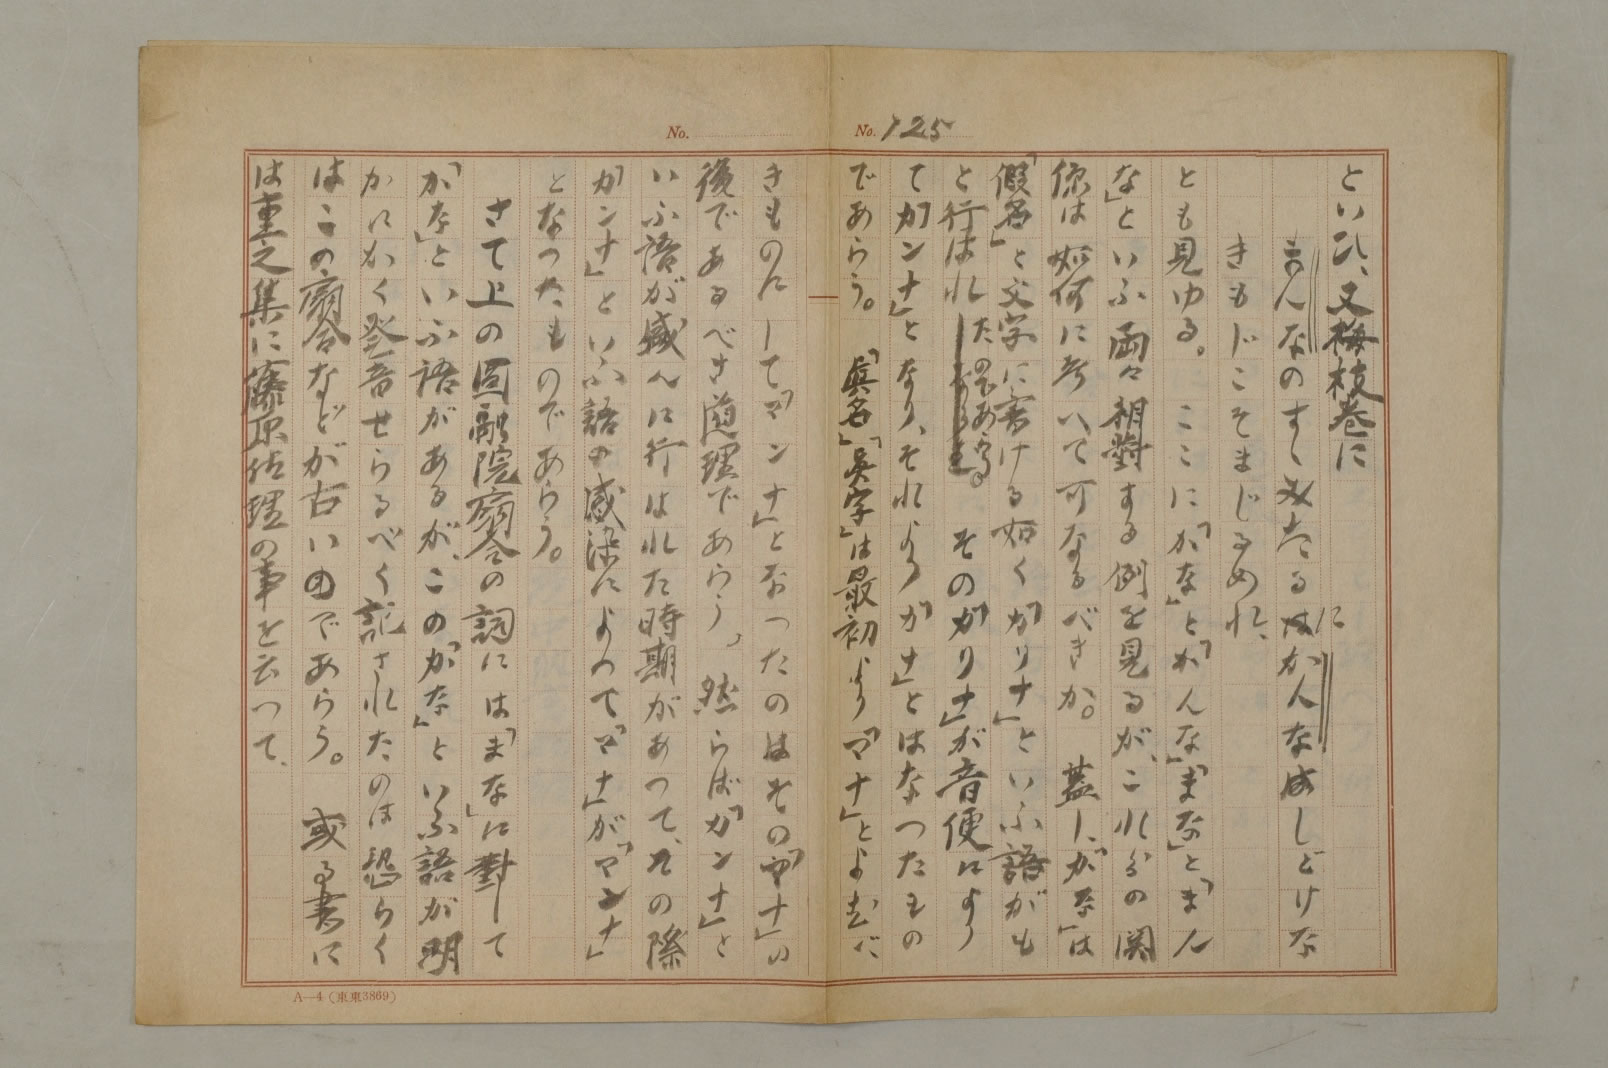 No. 125
といひ、又梅枝巻に
まんなのすゝみたるにかんな、しどけな
きもじこそまじるめれ、
とも見ゆる。ここに「かな」と「かんな」「まな」と「まん
な」といふ両々相對する例を見るが、これらの関
係は如何に考へて可なるべきか。蓋し、「かな」は
「假名」と文字に書ける如く「カリナ」といふ語がも
と行はれたのであらう。その「カリナ」が音便によつ
て「カンナ」となり、それより「カナ」とはなつたもの
であらう。「眞名」「眞字」は最初より「マナ」とよむべ
No.
きものにして「マンナ」となつたのはその「マナ」の
後であるべき道理であらう。然らば「カンナ」と
いふ語が盛んに行はれた時期があつて、その際
「カンナ」といふ語の感染によつて「マナ」が「マンナ」
となつたものであらう。
さて上の圓融院扇合の詞には「まな」に對して
「かな」といふ語があるが、この「かな」といふ語が明
かにかく発音せらるべく記されたのは恐らく
はこの扇合などが古いのであらう。或る書に
は重之集に藤原佐理の事を云つて、
A—4（東東3869）